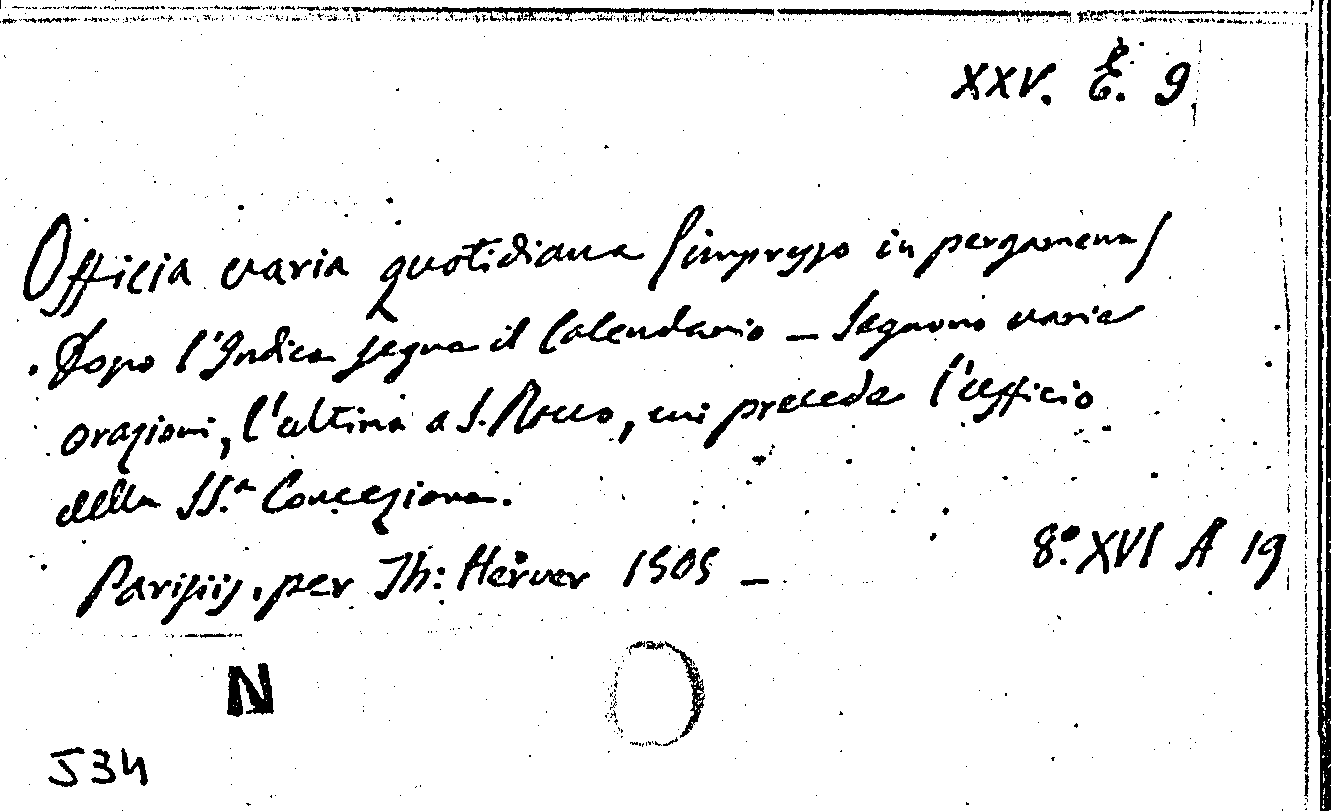 XXV. E. 9
Officia varia quotidiana /impresso in pergamena/
Dopo l'Indice segue il Calendario - Seguono varie
orazioni, l'ultima a S. Rocco, cui precede l'ufficio
della SS.a Concezione.
Parisiis, per Th: Herver 1505 -
8.o XVI A 19
N
534